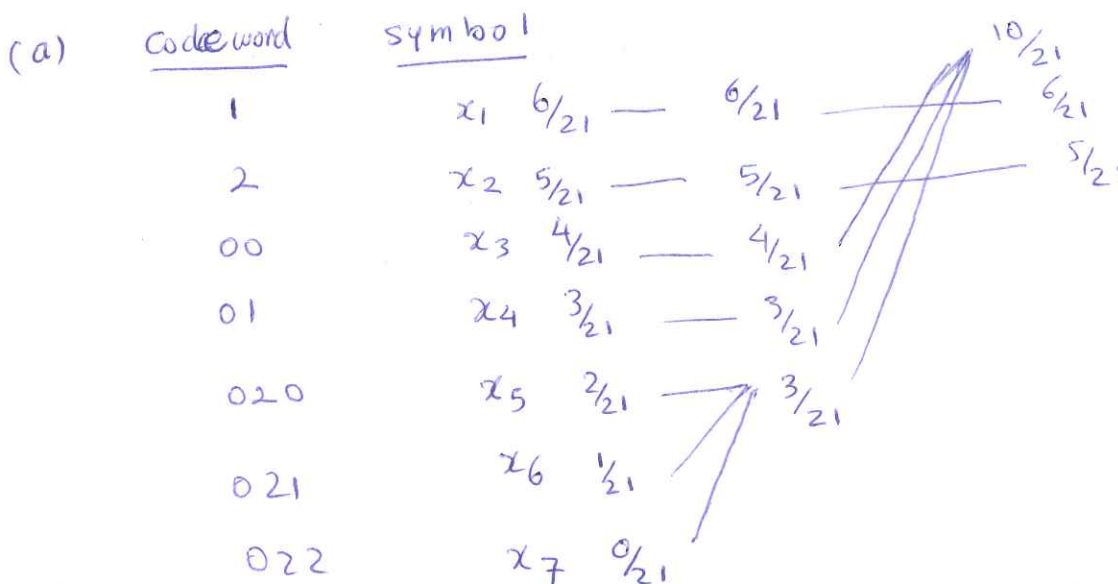 (a) Codeword symbol 10/21
1 x1 6/21 6/21 6/21
2 x2 5/21 5/21 5/2
00 x3 4/21 4/21
01 x4 3/21 3/21
020 x5 2/21 3/21
021 x6 1/21
022 x7 0/21